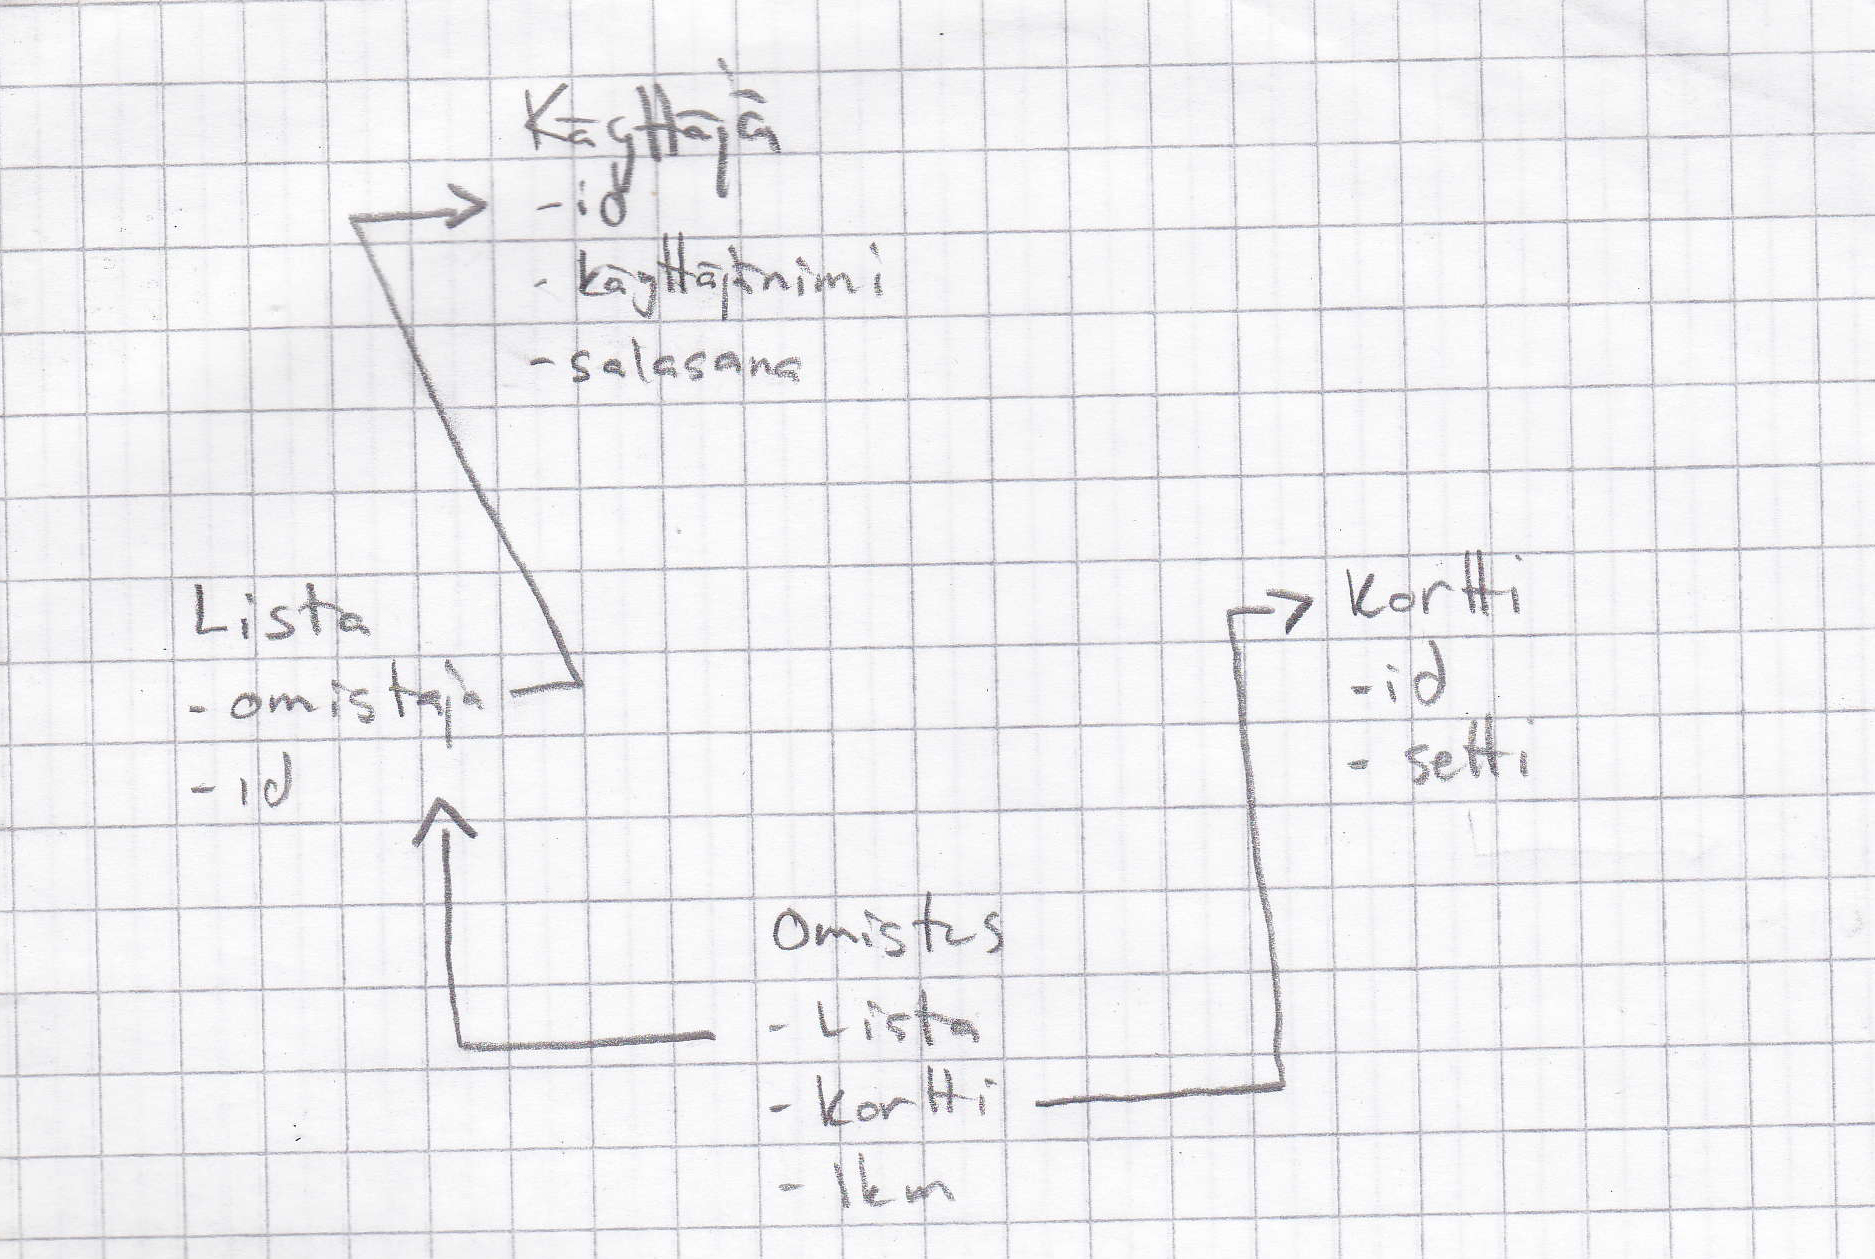 Käyttäjä
-id
- käyttäjänimi
-salasana
Lista
- omistaja
- id
Kortti
-id
- setti
Omistus
- Lista
- kortti
- lkm